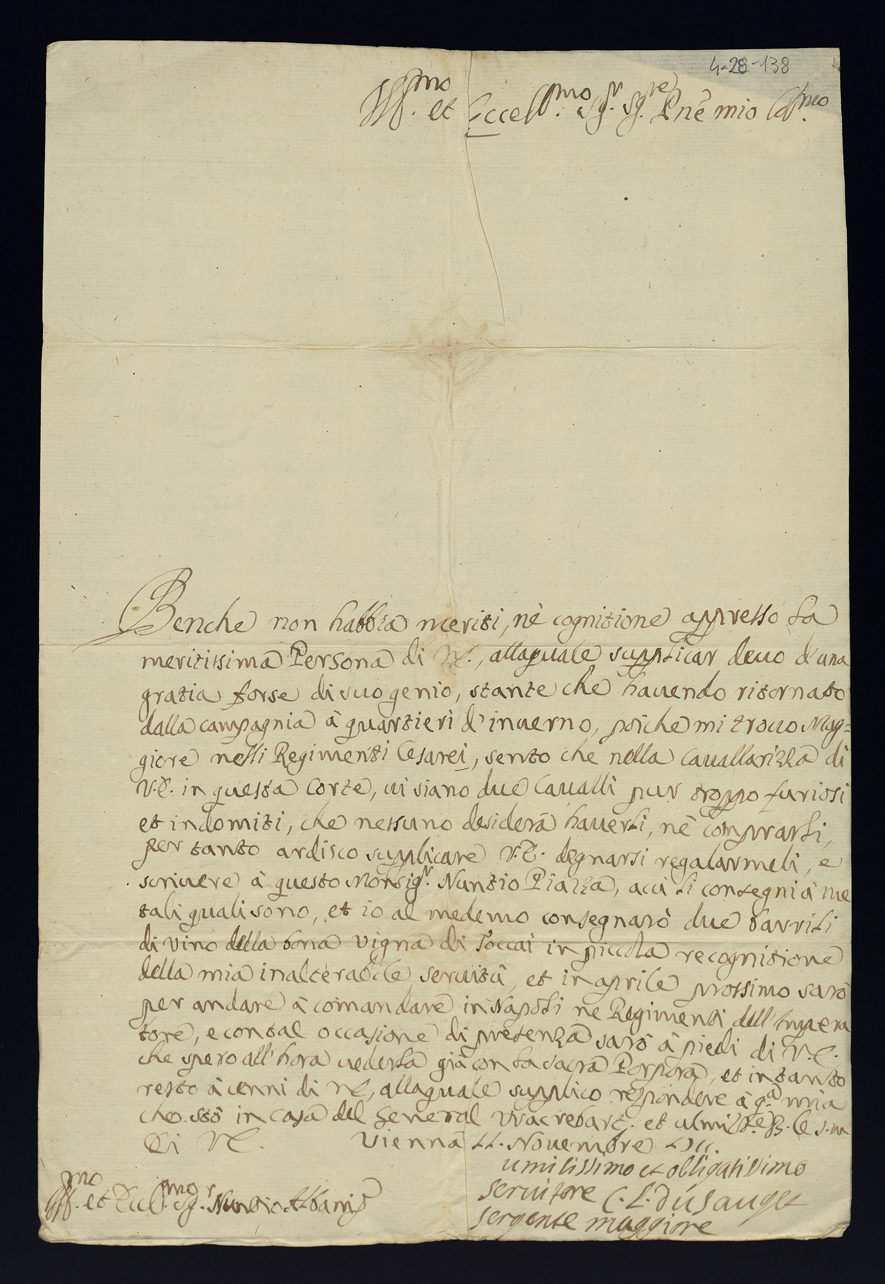 4-28-138
Ill.mo et Eccell.mo Sig.r Sig.re Pñe mio Col.mo
Benche non habbia meriti, nè cognitione appresso la
meritissima Persona di V.E., allaquale supplicar devo d'una
gratia forse di suo genio, stante che havendo ritornato
dalla campagnia à quartieri d'inverno, poiche mi trovo Mag=
giore nelli Regimenti Cesarei, sento che nella Cavallarizza di
V.E. in questa Corte, vi siano due Cavalli pur troppo furiosi
et indomiti, che nessuno desidera haverli, nè comprarli,
per tanto ardisco supplicare V.E. degnarsi regalarmeli, e
scrivere à questo Monsig.r Nuntio Piazza, acciò li consegni à me
tali quali sono, et io al medemo consegnarò due barrili
di vino della bona vigna di Toccai in piccola recognitione
della mia inalterabile servitù, et in aprile prossimo sarò
per andare à comandare in Napoli ne Regimenti dell'Impera
tore, e con tal occasione di presenza sarò à piedi di V.E.
che spero all'hora vederla già con la sacra Porpora, et in tanto
resto à cenni di V.E., allaquale supplico respondere à q.a mia
che stò in casa del General et
Di V.E. Vienna 11. Novembre
umilissimo et obligatissimo
servitore C. L. du Sauget
sergente maggiore
Ill.mo et Ecc.mo Sig.r Nuntio Albani